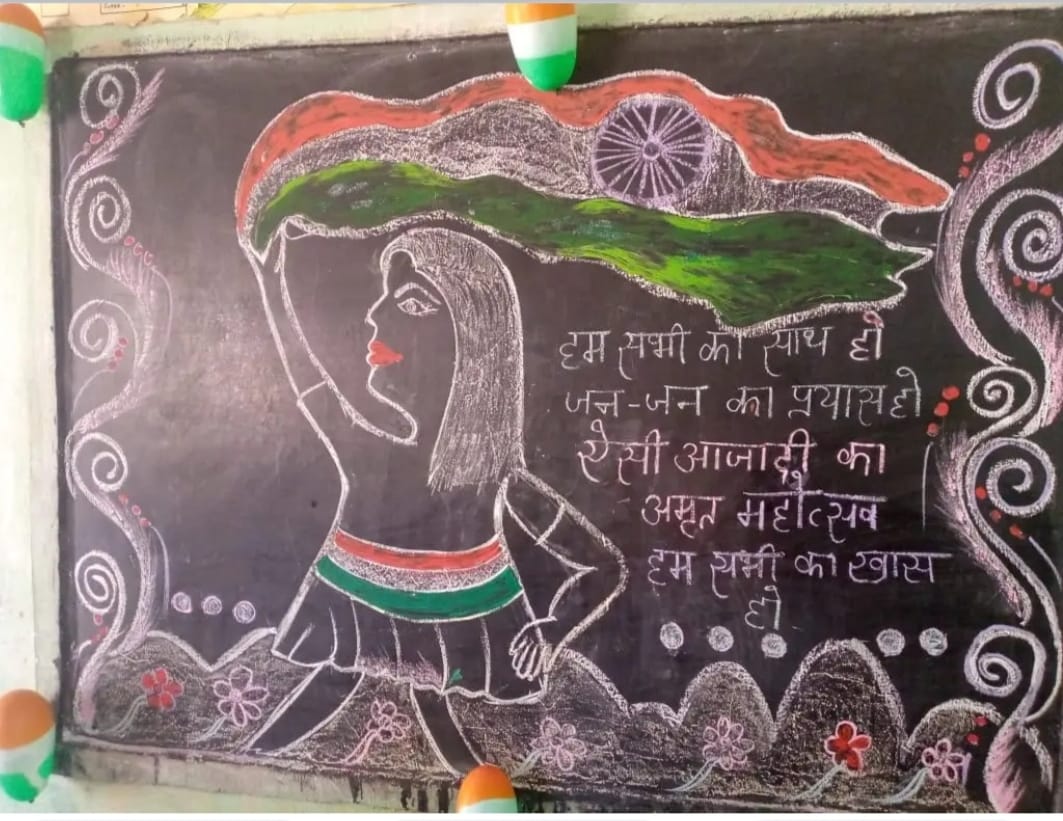 हम सभी का साथ हो
जन-जन का प्रयास हो
ऐसी आजादी का
अमृत महोत्सव
हम सभी का खास
हो